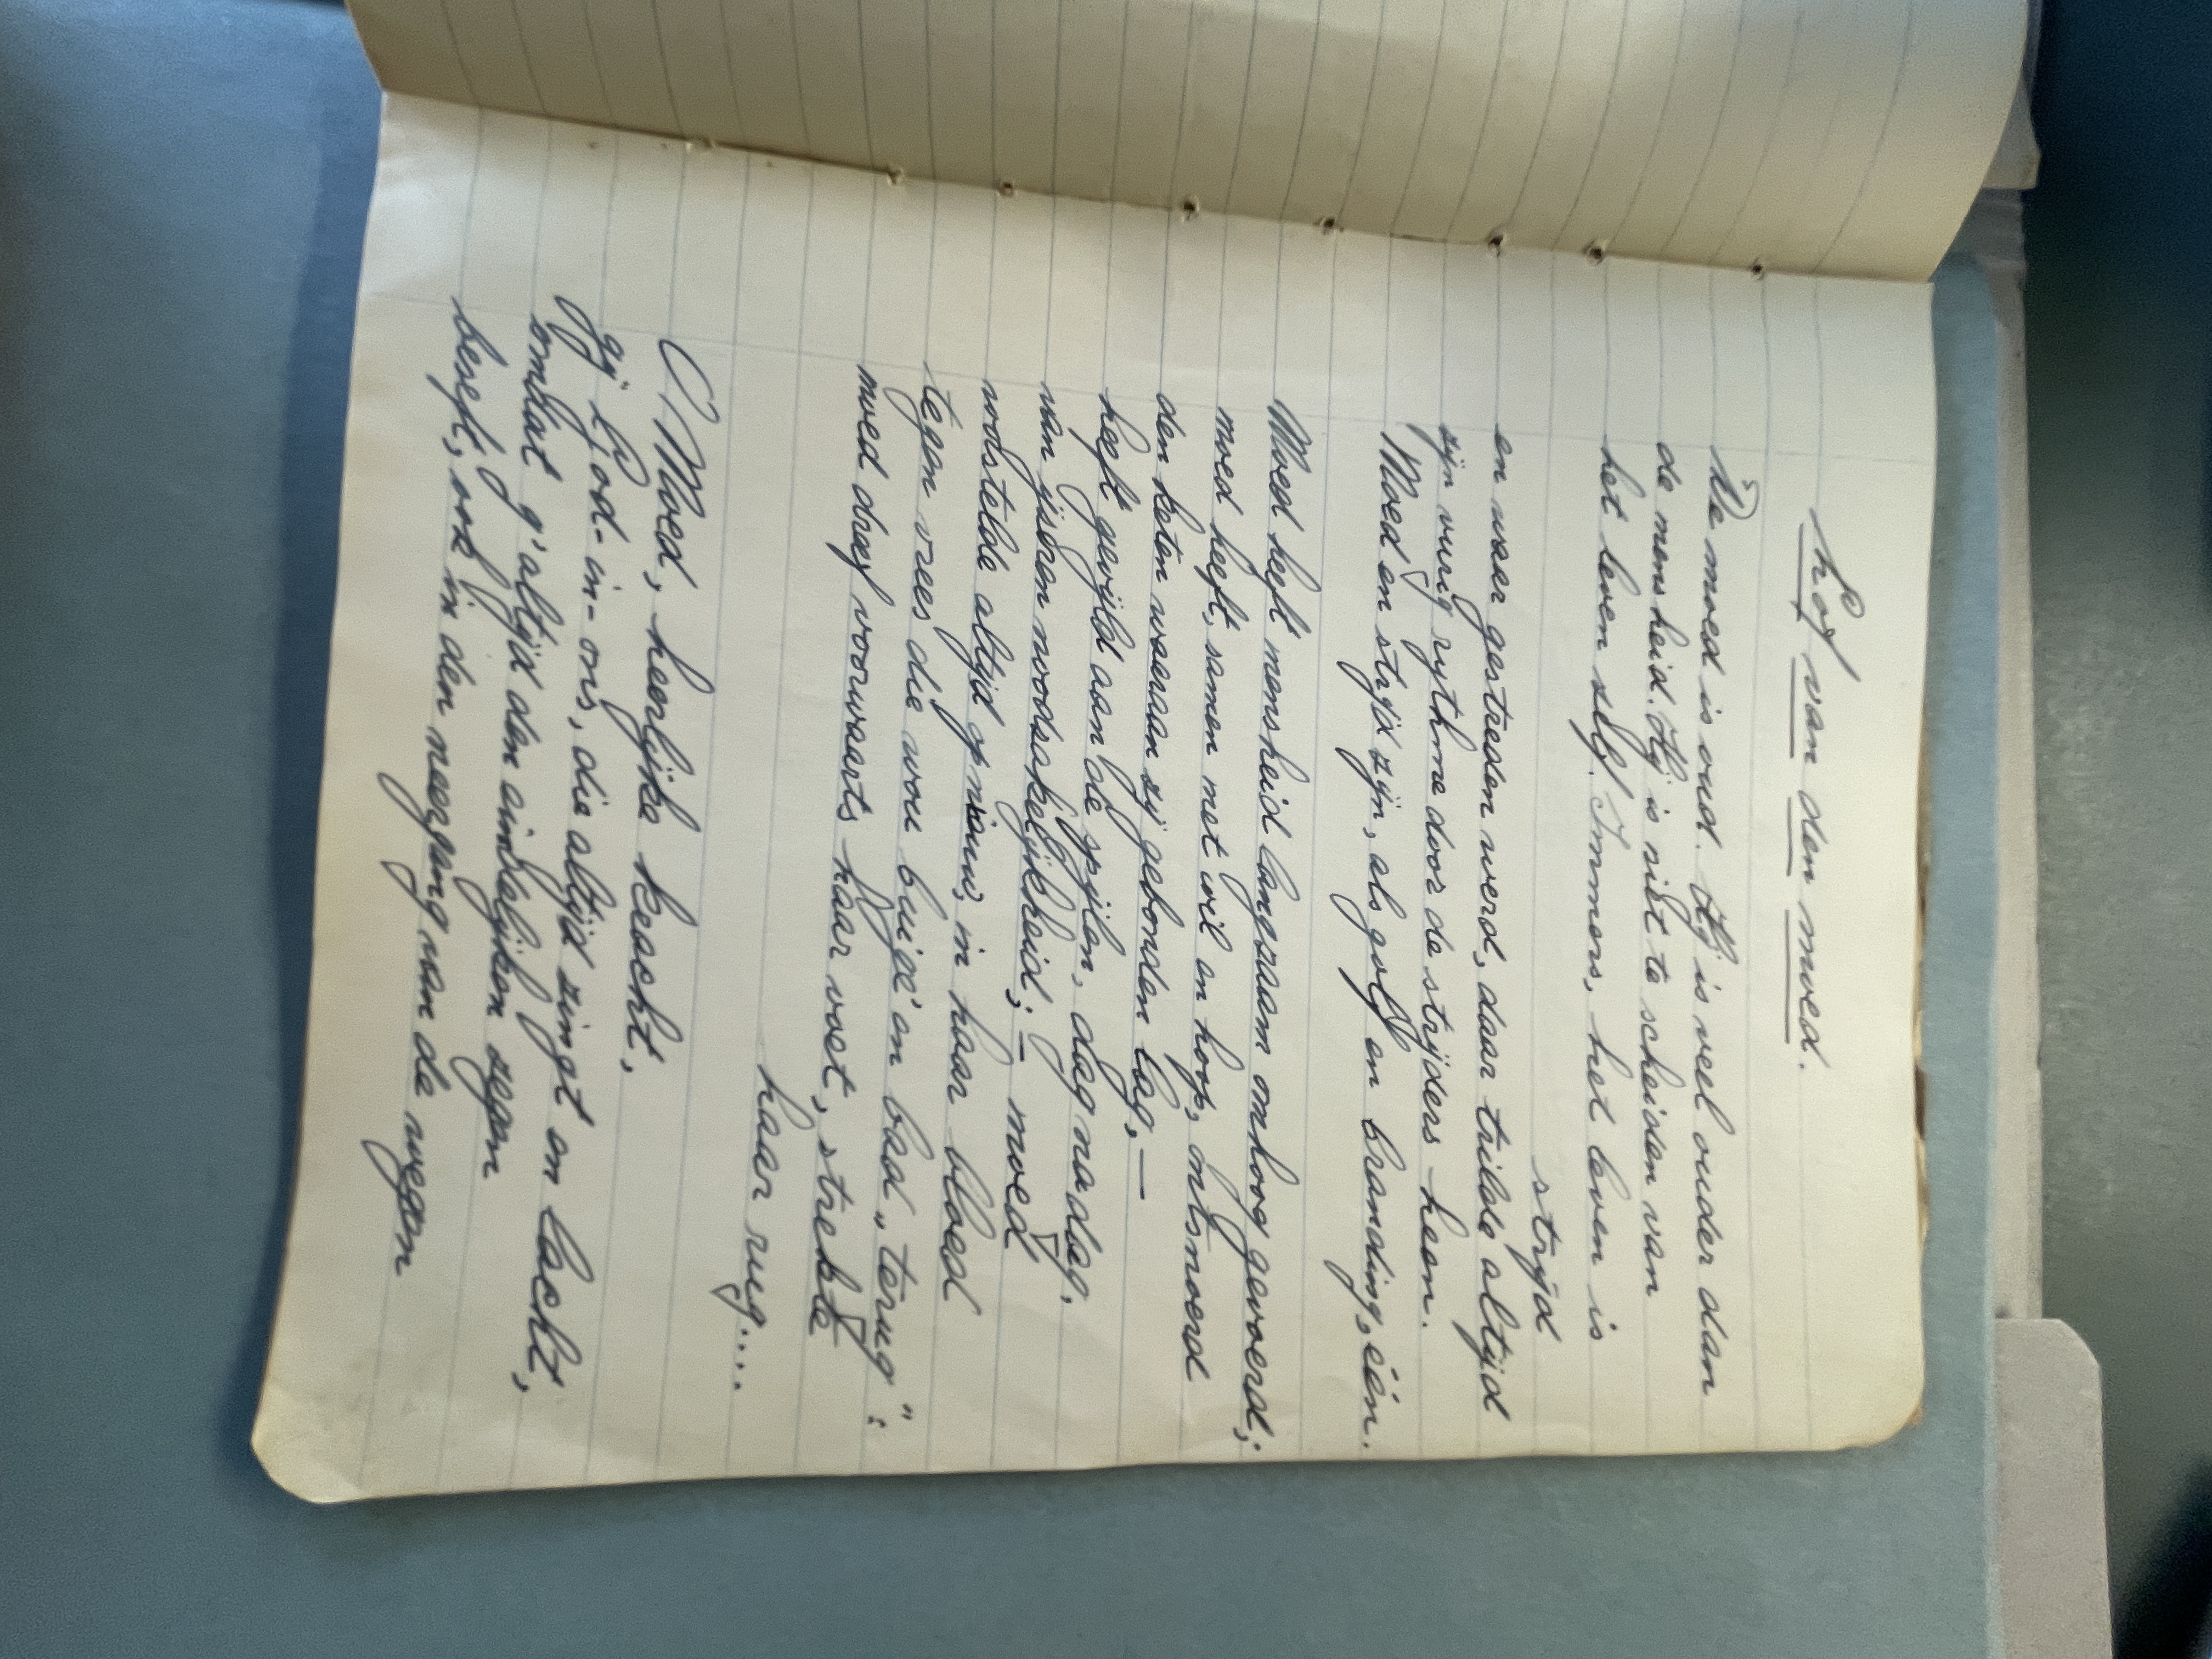 Lof van den moed.
De moed is oud. Hij is veel ouder dan
de mensheid. Hij is niet te scheiden van
het leven zelf. Immers, het leven is
strijd
en waar gestreden werd, daar trilde altijd
zijn vurig rythme door de strijders heen.
Moed en strijd zijn, als golf en branding, één.
Moed heeft mensheid langzaam omhoog gevoerd;
moed heeft, samen met wil en hoop, ontsnoerd
den keten waaraan zij gebonden lag, —
heeft gevijld aan de spijlen, dag na dag,
van ijsren noodzakelijkheid; – moed
worstelde altijd opnieuw, in haar bloed
tegen vrees die wou buige' en bad „terug":
moed dreef voorwaarts haar voet, strekte
haar rug....
O Moed, heerlijke kracht,
gij God-in-ons, die altijd zingt en lacht,
omdat g'altijd den eindelijken zegen
beseft, ook in den neergang van de wegen